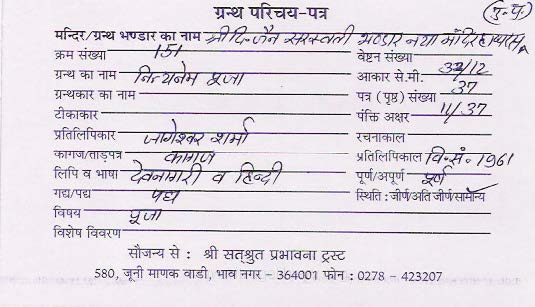 ग्रन्थ परिचय-पत्र (पु.प.)
मन्दिर/ग्रन्थ भण्डार का नाम श्री दि. जैन सरस्वती भण्डार नया मंदिर हाथरस
क्रम संख्या 151 वेष्टन संख्या
ग्रन्थ का नाम नित्यनेम पूजा आकार से.मी. 32/12
ग्रन्थकार का नाम पत्र (पृष्ठ) संख्या 37
टीकाकार पंक्ति अक्षर 11/37
प्रतिलिपिकार जागेश्वर शर्मा रचनाकाल
कागज/ताड़पत्र कागज प्रतिलिपिकाल वि.सं. 1961
लिपि व भाषा देवनागरी व हिन्दी पूर्ण/अपूर्ण पूर्ण
गद्य/पद्य पद्य स्थिति : जीर्ण/अति जीर्ण/सामान्य
विषय पूजा
विशेष विवरण
सौजन्य से : श्री सत्श्रुत प्रभावना ट्रस्ट
580, जूनी माणक वाडी, भाव नगर – 364001 फोन : 0278 – 423207